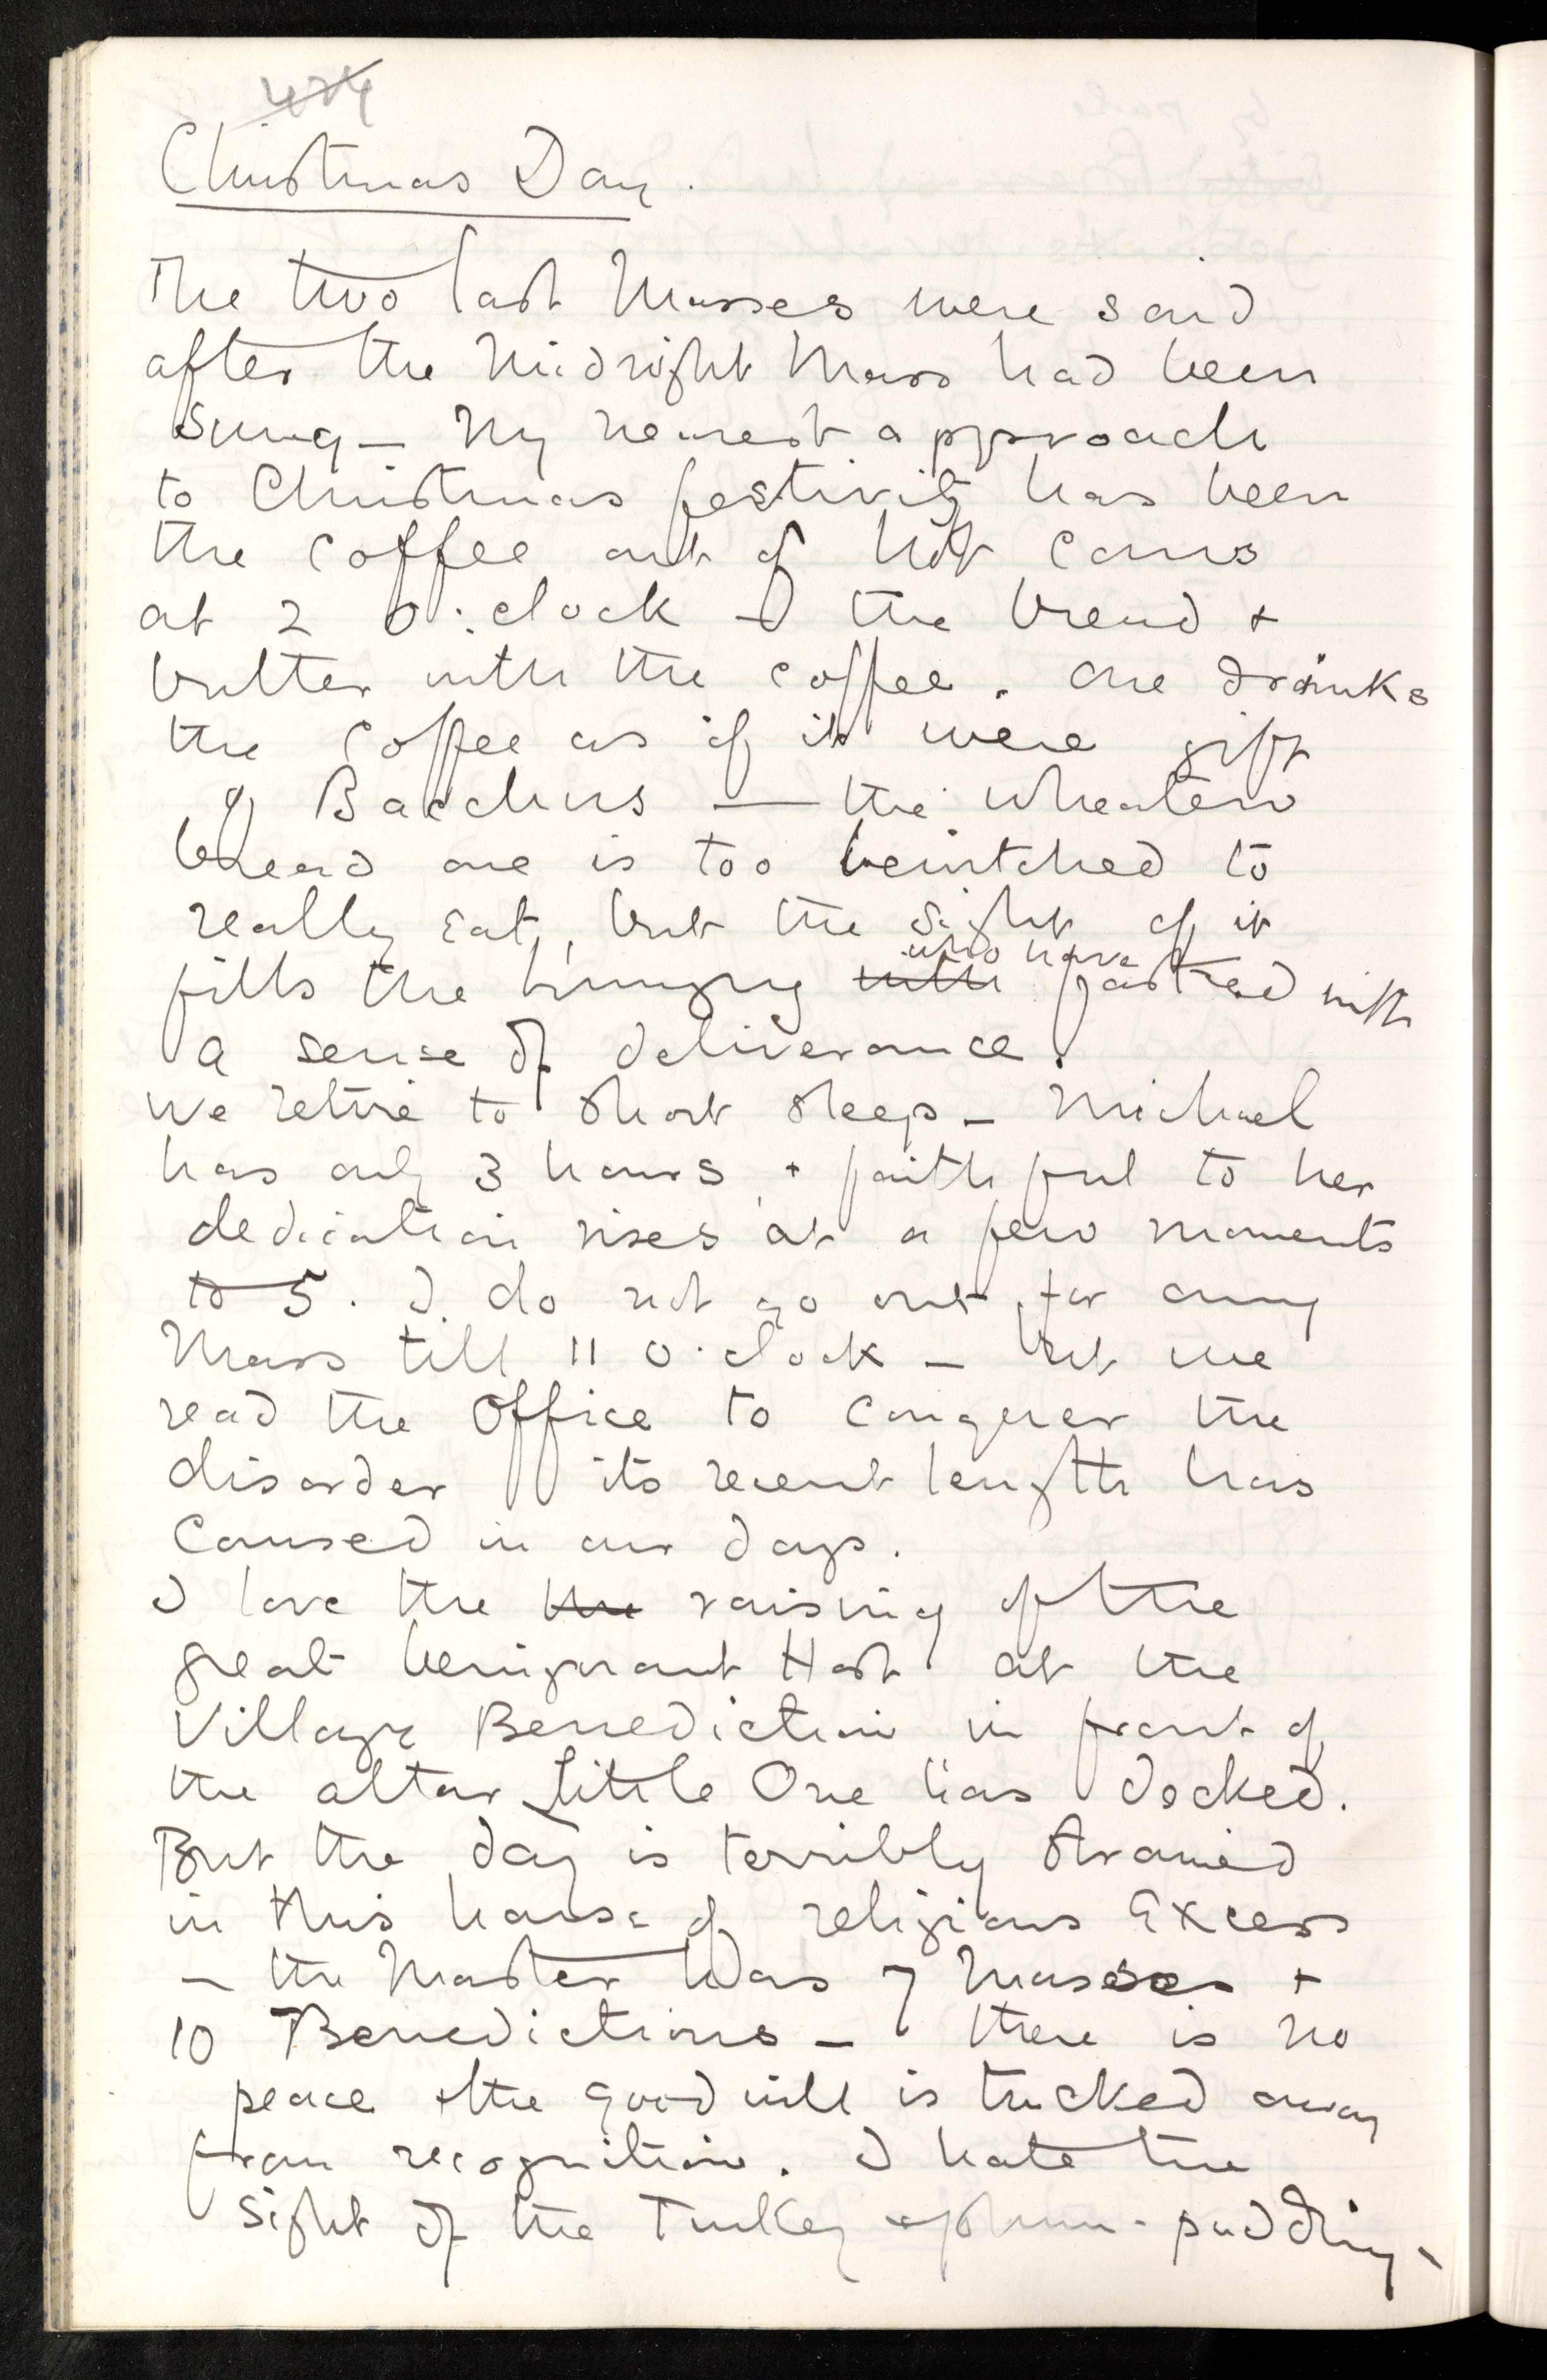 Christmas Day.
The two last Masses were said
after the Midnight Mass had been
sung — My nearest approach
to Christmas festivity has been
the coffee out of hot cans
at 2 o'clock — & the bread +
butter with the coffee. One drinks
the coffee as if it were gift
of Bacchus — the wheaten
bread one is too bewitched to
really eat, but the sight of it
fills the hungry with who have fasted with
a sense of deliverance.
We retire to short sleep — Michael
has only 3 hours, + faithful to her
dedication rises at a few moments
to 5. I do not go out for any
Mass till 11 o'clock — but we
read the Office to conquer the
disorder its recent length has
caused in our days.
I love the the raising of the
great benignant Host at the
Village Benediction in front of
the altar Little One has decked.
But the day is terribly strained
in this house of religious excess
— the Master has 7 Masses +
10 Benedictions — there is no
peace + the good will is tucked away
from recognition. I hate the
sight of the Turkey + plum-pudding —